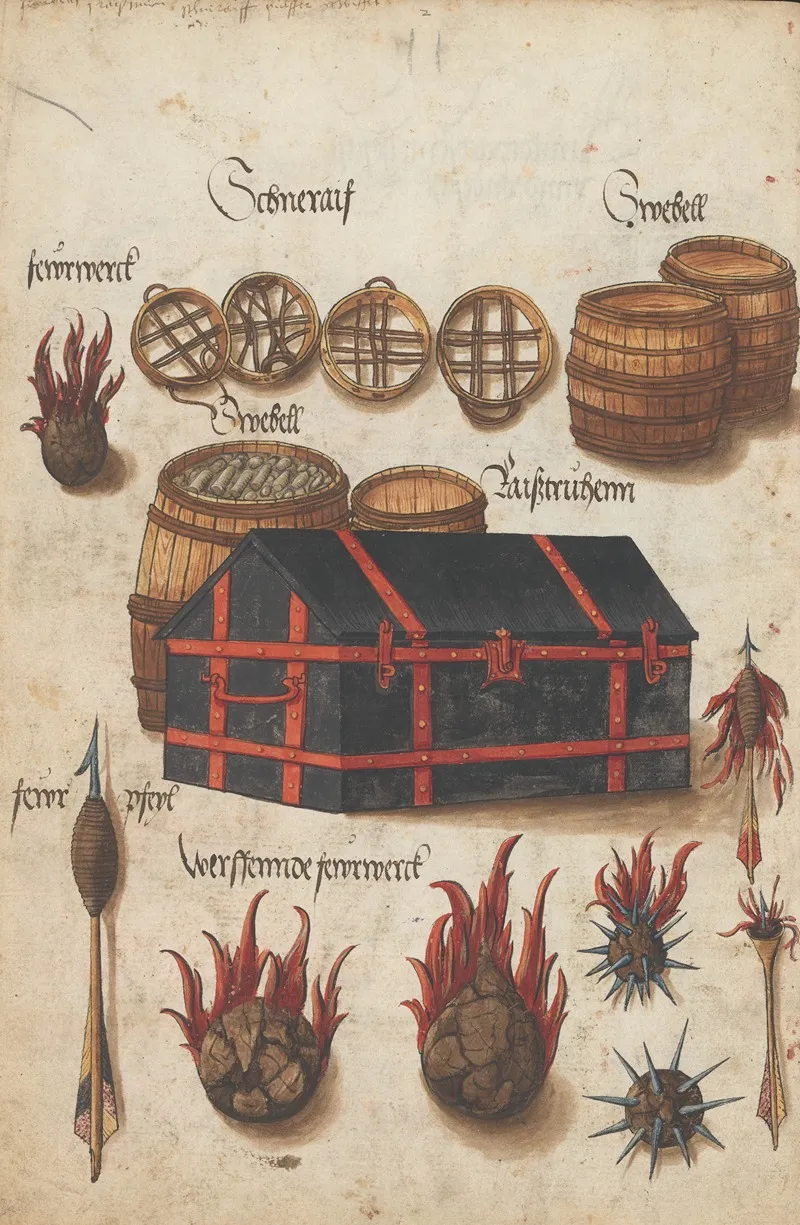 2
11
Schneraif
Swebell
fewrwerck
Swebell
Raißtruhenn
fewr pfeyl
Werffennde fewrwerck